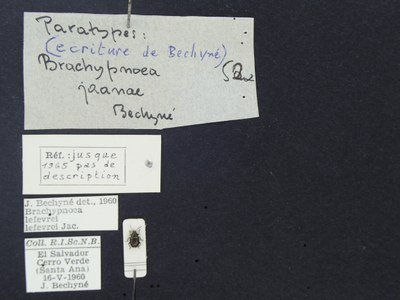 Paratypes:
(ecriture de Bechyné)
Brachypnoea
jaanae
Bechyné
Réf.: jusque
1965 pas de
description
J. Bechyné det., 1960
Brachypnoea
lefevrei
lefevrei Jac.
Coll. R.I.Sc.N.B.
El Salvador
Cerro Verde
(Santa Ana)
16-V-1960
J. Bechyné